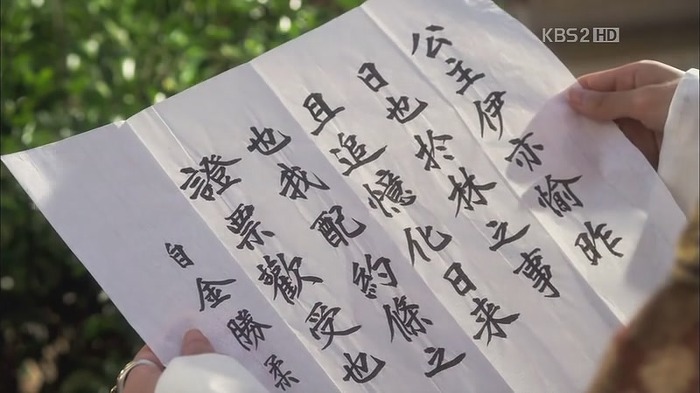 KBS2 HD
公主伊亦愉昨
日也於林之事
且追憶化日来
也我配約條之
證票歡受也
自金勝柔